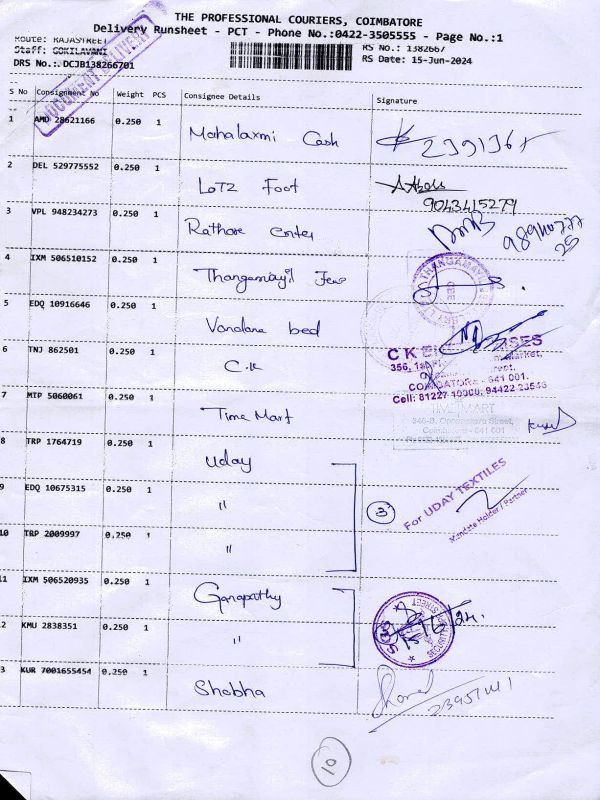 THE PROFESSIONAL COURIERS, COIMBATORE
Delivery Runsheet - PCT - Phone No.:0422-3505555 - Page No.:1
Route: RAJASTREET
Staff: GOKILAVANI
RS No.: 1382667
DRS No.:.DCJB138266701
RS Date: 15-Jun-2024
DOCUMENT DELIVERY
S No Consignment No Weight PCS Consignee Details Signature
1 AMD 28621166 0.250 1 Mahalaxmi Cash
2 DEL 529775552 0.250 1 Lotz Foot
9043415279
3 VPL 948234273 0.250 1 Rathore enter
4 IXM 506510152 0.250 1 Thangamayil Jew
5 EDQ 10916646 0.250 1 Vandana bed
6 TNJ 862501 0.250 1 C.K
C K
356,
641 001.
Cell: 81227 10000, 94422 23555
7 MTP 5060061 0.250 1 Time Mart
TIME MART
346-B, Oppanakara Street,
Coimbatore - 641 001
8 TRP 1764719 0.250 1 Uday
9 EDQ 10675315 0.250 1 "
3
For UDAY TEXTILES
Mandate Holder / Partner
10 TRP 2009997 0.250 1 "
11 IXM 506520935 0.250 1 Ganapathy
12 KMU 2838351 0.250 1 "
13 KUR 7001655454 0.250 1 Shobha
10